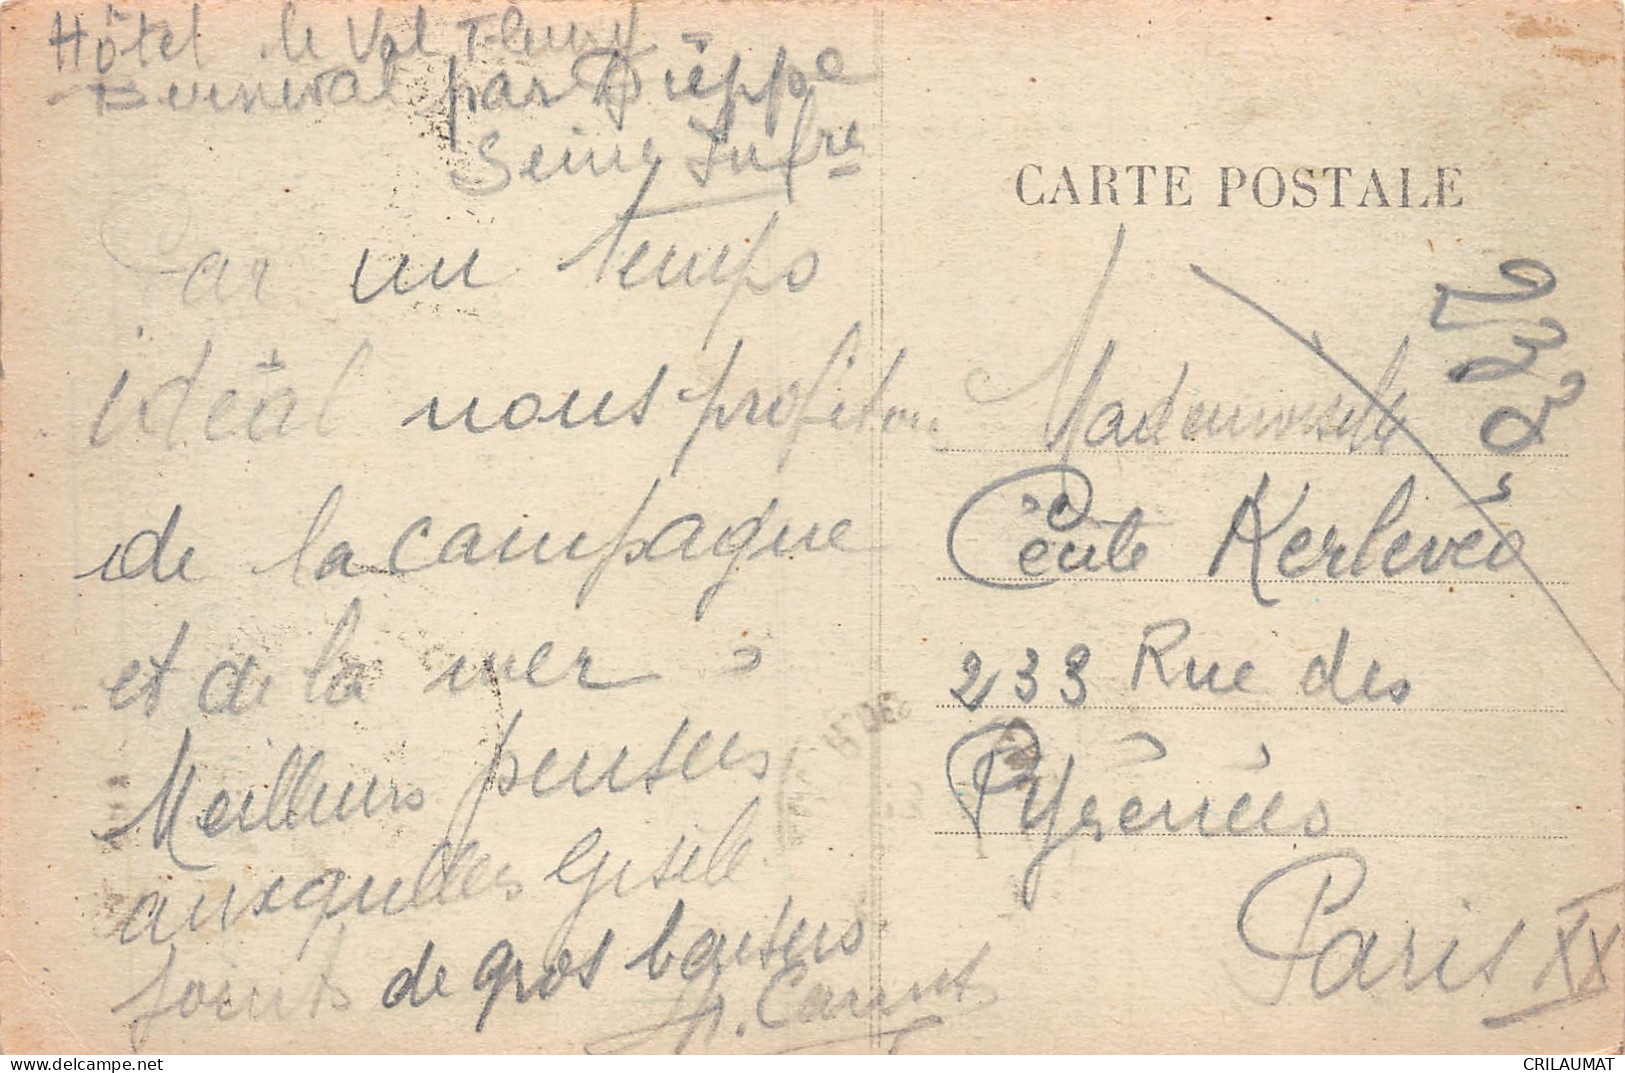 Hôtel le Val Fleury
Berneval par Dieppe
Seine Infre
Par un temps
idéal nous profitons
de la campagne
et de la mer
Meilleurs pensées
auxquelles Gisèle
joint de gros baisers
CARTE POSTALE
Mademoiselle
Kerlevéo
233 Rue des
Pyrénées
Paris XX
CRILAUMAT